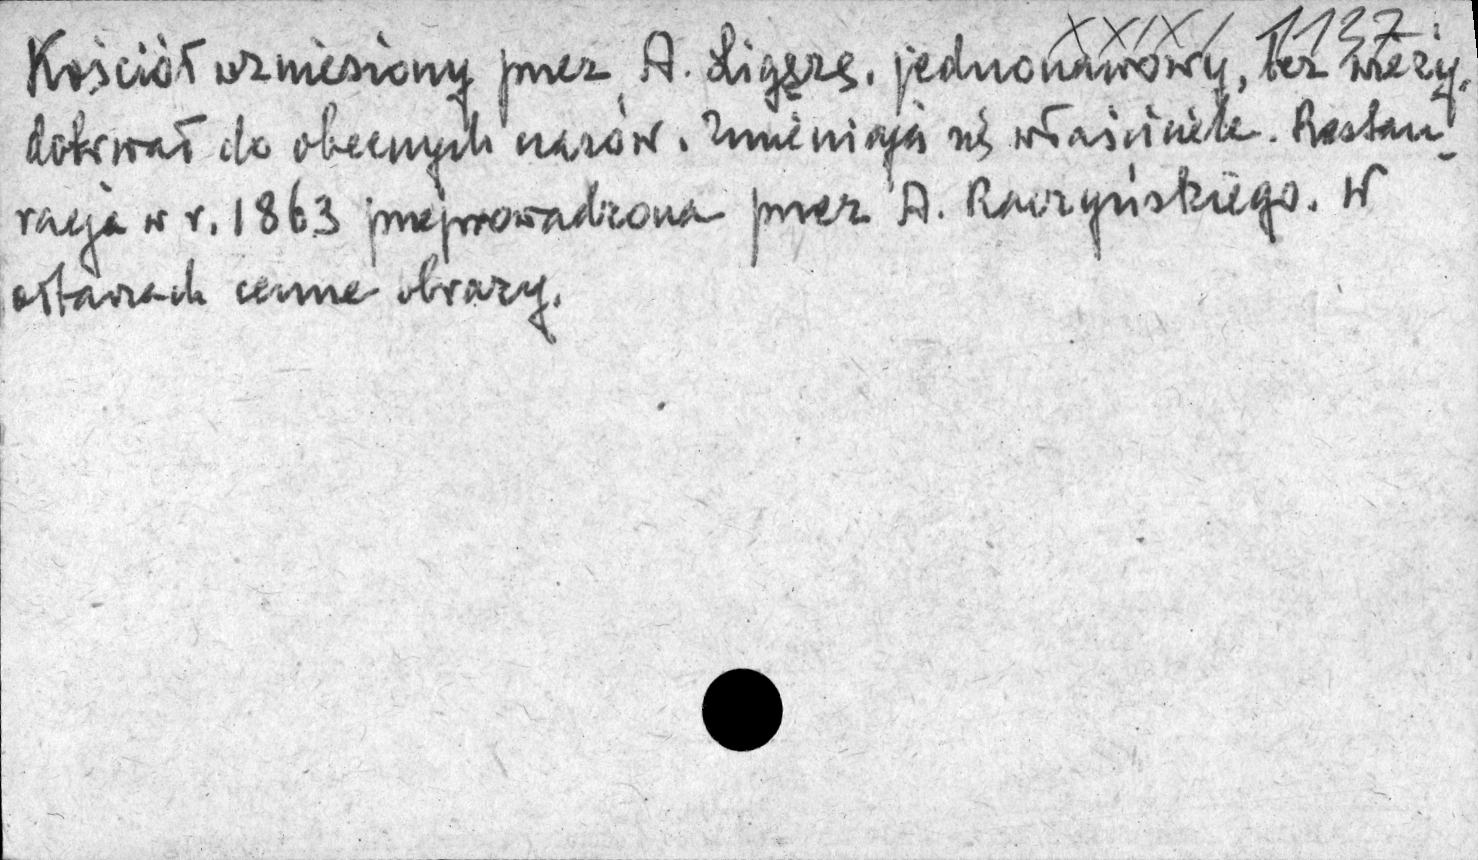 XXIX/1137
Kościół wzniesiony przez A. Ligęzę. jednonawowy, bez wieży.
dotrwał do obecnych czasów. Zmieniają się właściciele. Restau-
racja w r. 1863 przeprowadzona przez A. Raczyńskiego. W
ołtarzach cenne obrazy.